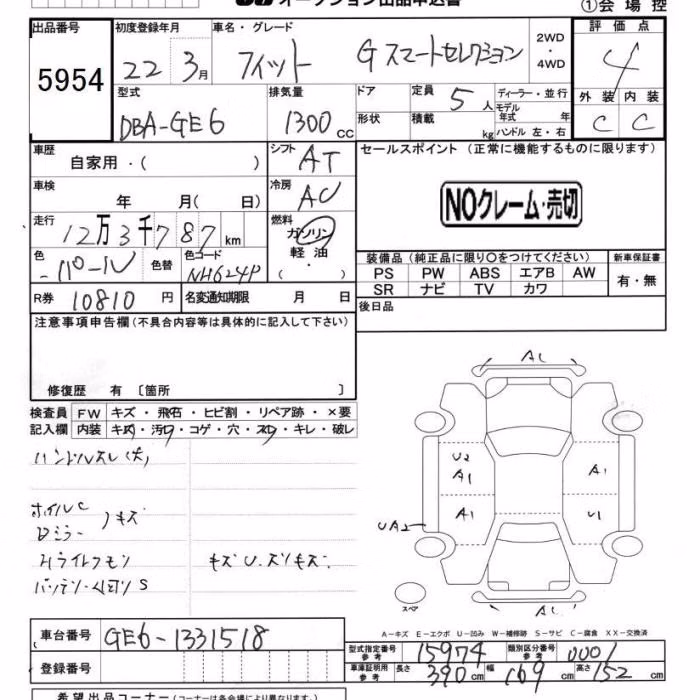 オークション出品申込書
①会場控
出品番号 初度登録年月 車名・グレード 2WD・4WD 評価点
5954 22 3月 フィット Gスマートセレクション 4
型式 排気量 ドア 定員 5人 ディーラー・並行 外装 内装
DBA-GE6 1300cc 形状 積載 kg モデル年式 年 ハンドル 左・右 C C
車歴 自家用・( ) シフト AT セールスポイント (正常に機能するものに限ります)
車検 年 月( 日) 冷房 AC NOクレーム・売切
走行 12万3千787km 燃料 ガソリン 軽油 ( ・ )
装備品 (純正品に限り○をつけてください) 新車保証書
色 パール 色替 色コード NH624P PS PW ABS エアB AW 有・無
SR ナビ TV カワ
R券 10810円 名変通知期限 月 日 後日品
注意事項申告欄(不具合内容等は具体的に記入して下さい)
修復歴 有 〔箇所 〕
検査員 FW キズ・飛石・ヒビ割・リペア跡・×要
記入欄 内装 キズ・汚れ・コゲ・穴・スレ・キレ・破レ
ハンドルスレ(大)
ホイルC
Dミラー キズ
キズU.スリキズ.
A1
U2
A1 A1
A1 U1
UA2
スペア
A-キズ E-エクボ U-凹み W-補修跡 S-サビ C-腐食 XX-交換済
車台番号 GE6-1331518
登録番号
型式指定番号参考 15974 類別区分番号参考 0001
車庫証明用参考 長さ 390cm 幅 169cm 高さ 152cm
希望出品コーナー(コーナーは各会場により異なります)